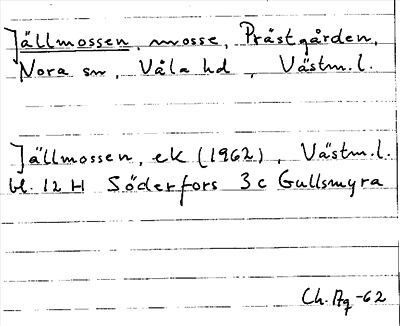 Jällmossen, mosse, Prästgården,
Nora sn, Våla hd, Västm.l.
Jällmossen, ek (1962), Västm.l.
bl. 12 H Söderfors 3 c Gullsmyra
Ch. Ag -62